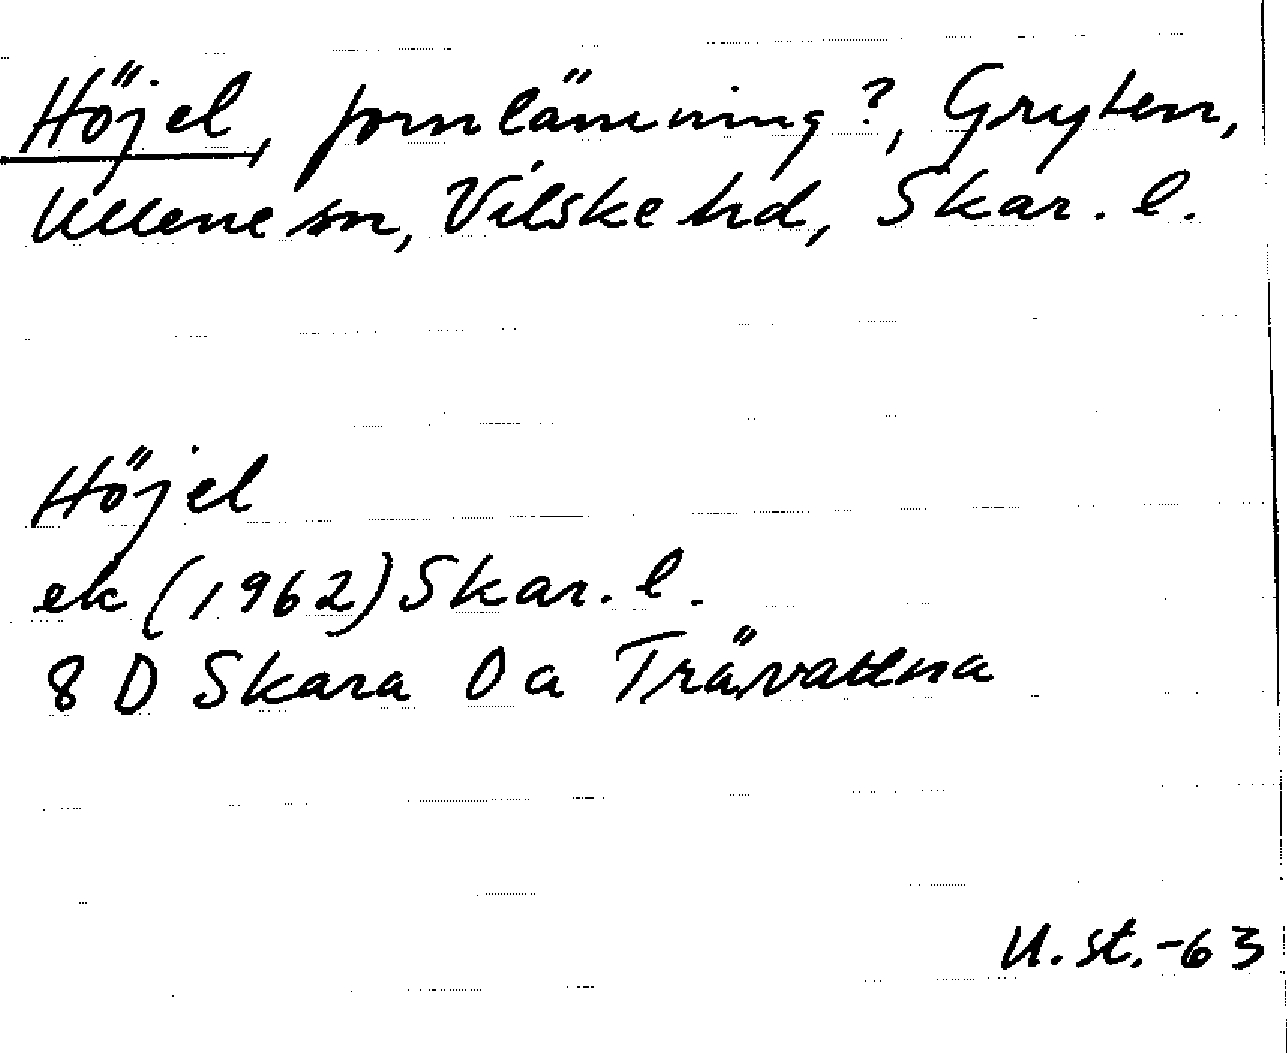 Höjel, fornlämning?, Gryten,
Ullene sn, Vilske hd, Skar. l.
Höjel
ek (1962) Skar. l.
8 D Skara 0 a Trävattna
U. st. -63